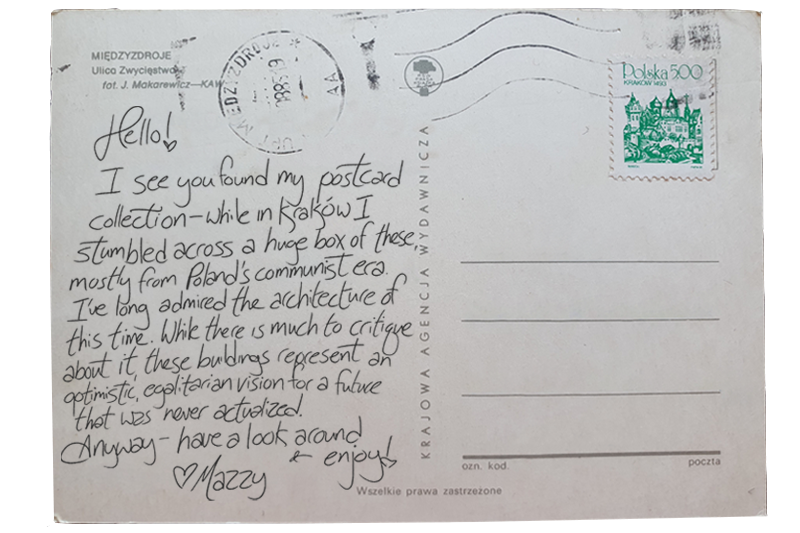 MIĘDZYZDROJE
Ulica Zwycięstwa
fot. J. Makarewicz—KAW
MIĘDZYZDROJE *
AA
Polska 500
KRAKÓW 1493
Hello!
I see you found my postcard
collection—while in Kraków I
stumbled across a huge box of these,
mostly from Poland's communist era.
I've long admired the architecture of
this time. While there is much to critique
about it, these buildings represent an
optimistic, egalitarian vision for a future
that was never actualized.
Anyway – have a look around
& enjoy!
♡Mazzy
KRAJOWA AGENCJA WYDAWNICZA
ozn. kod.
poczta
Wszelkie prawa zastrzeżone